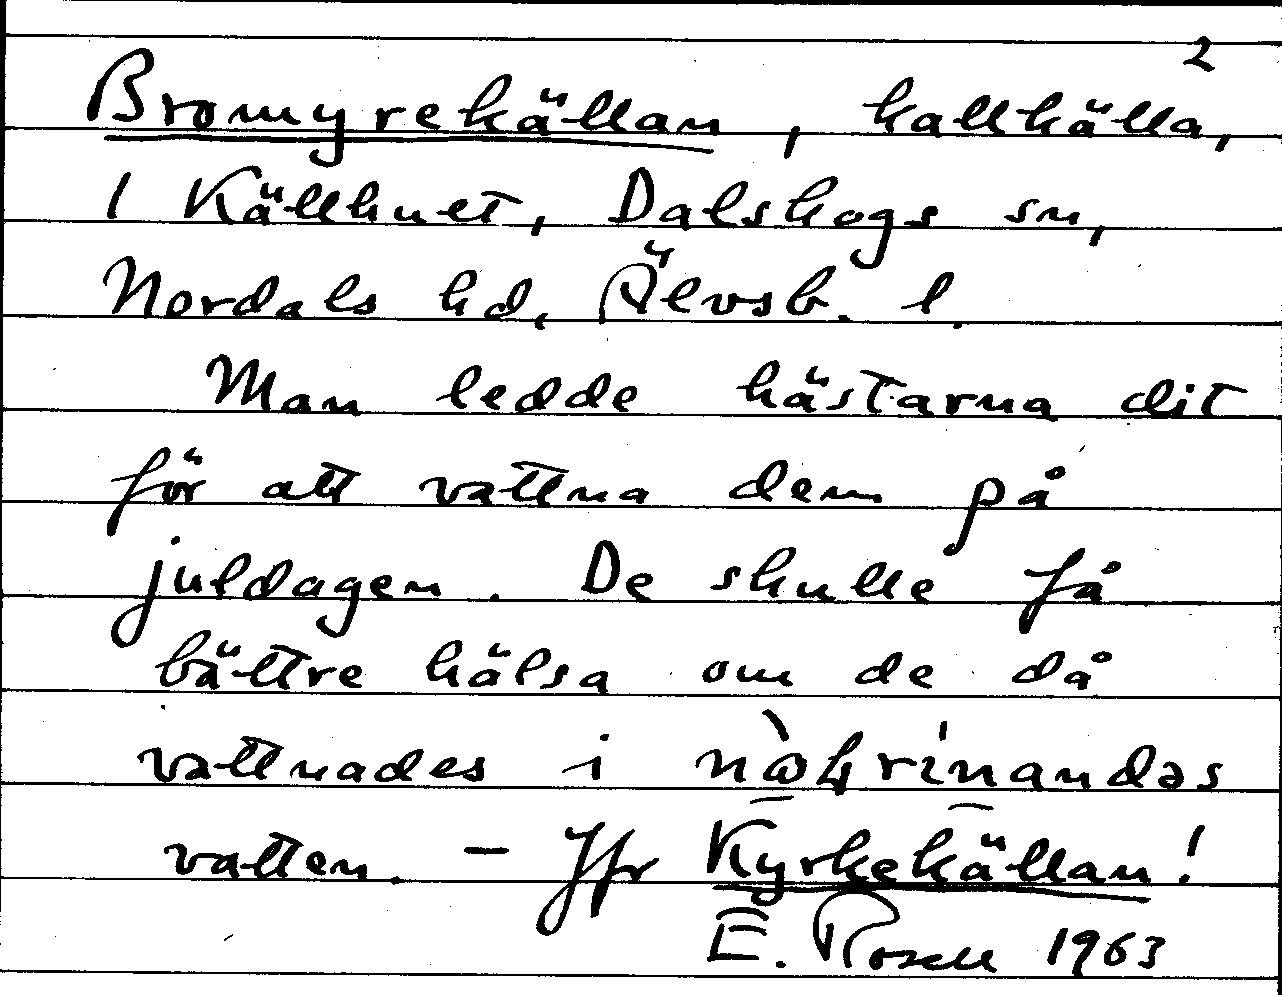 2
Bromyrekällan, kallkälla,
i Källhuet, Dalskogs sn,
Nordals hd, Älvsb. l.
Man ledde hästarna dit
för att vattna dem på
juldagen. De skulle få
bättre hälsa om de då
vattnades i
vatten. - Jfr Kyrkekällan!
E. Rosell 1963